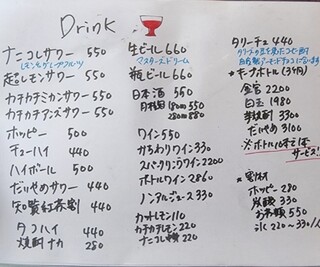 Drink
ナニコレサワー 550
レモン&グレープフルーツ
超レモンサワー 550
カチカチミカンサワー 550
カチカチアンズサワー 550
ホッピー 500
チューハイ 440
ハイボール 500
だいやめサワー 440
知覧紅茶割 440
タコハイ 440
焼酎ナカ 280
生ビール 660
マスターズドリーム
瓶ビール 660
日本酒 550
ワイン 550
かちわりワイン 330
スパークリングワイン 2200
ボトルワイン 2860
ノンアルジュース 330
カットレモン 110
カチカチレモン 220
ナニコレ 220
タリーチェ 440
★キープボトル (3ヶ月)
金宮 2200
白玉 1980
芋焼酎 3300
だいやめ 3100
サービス!
ホッピー 280
炭酸 330
お茶類 550
氷 220/330